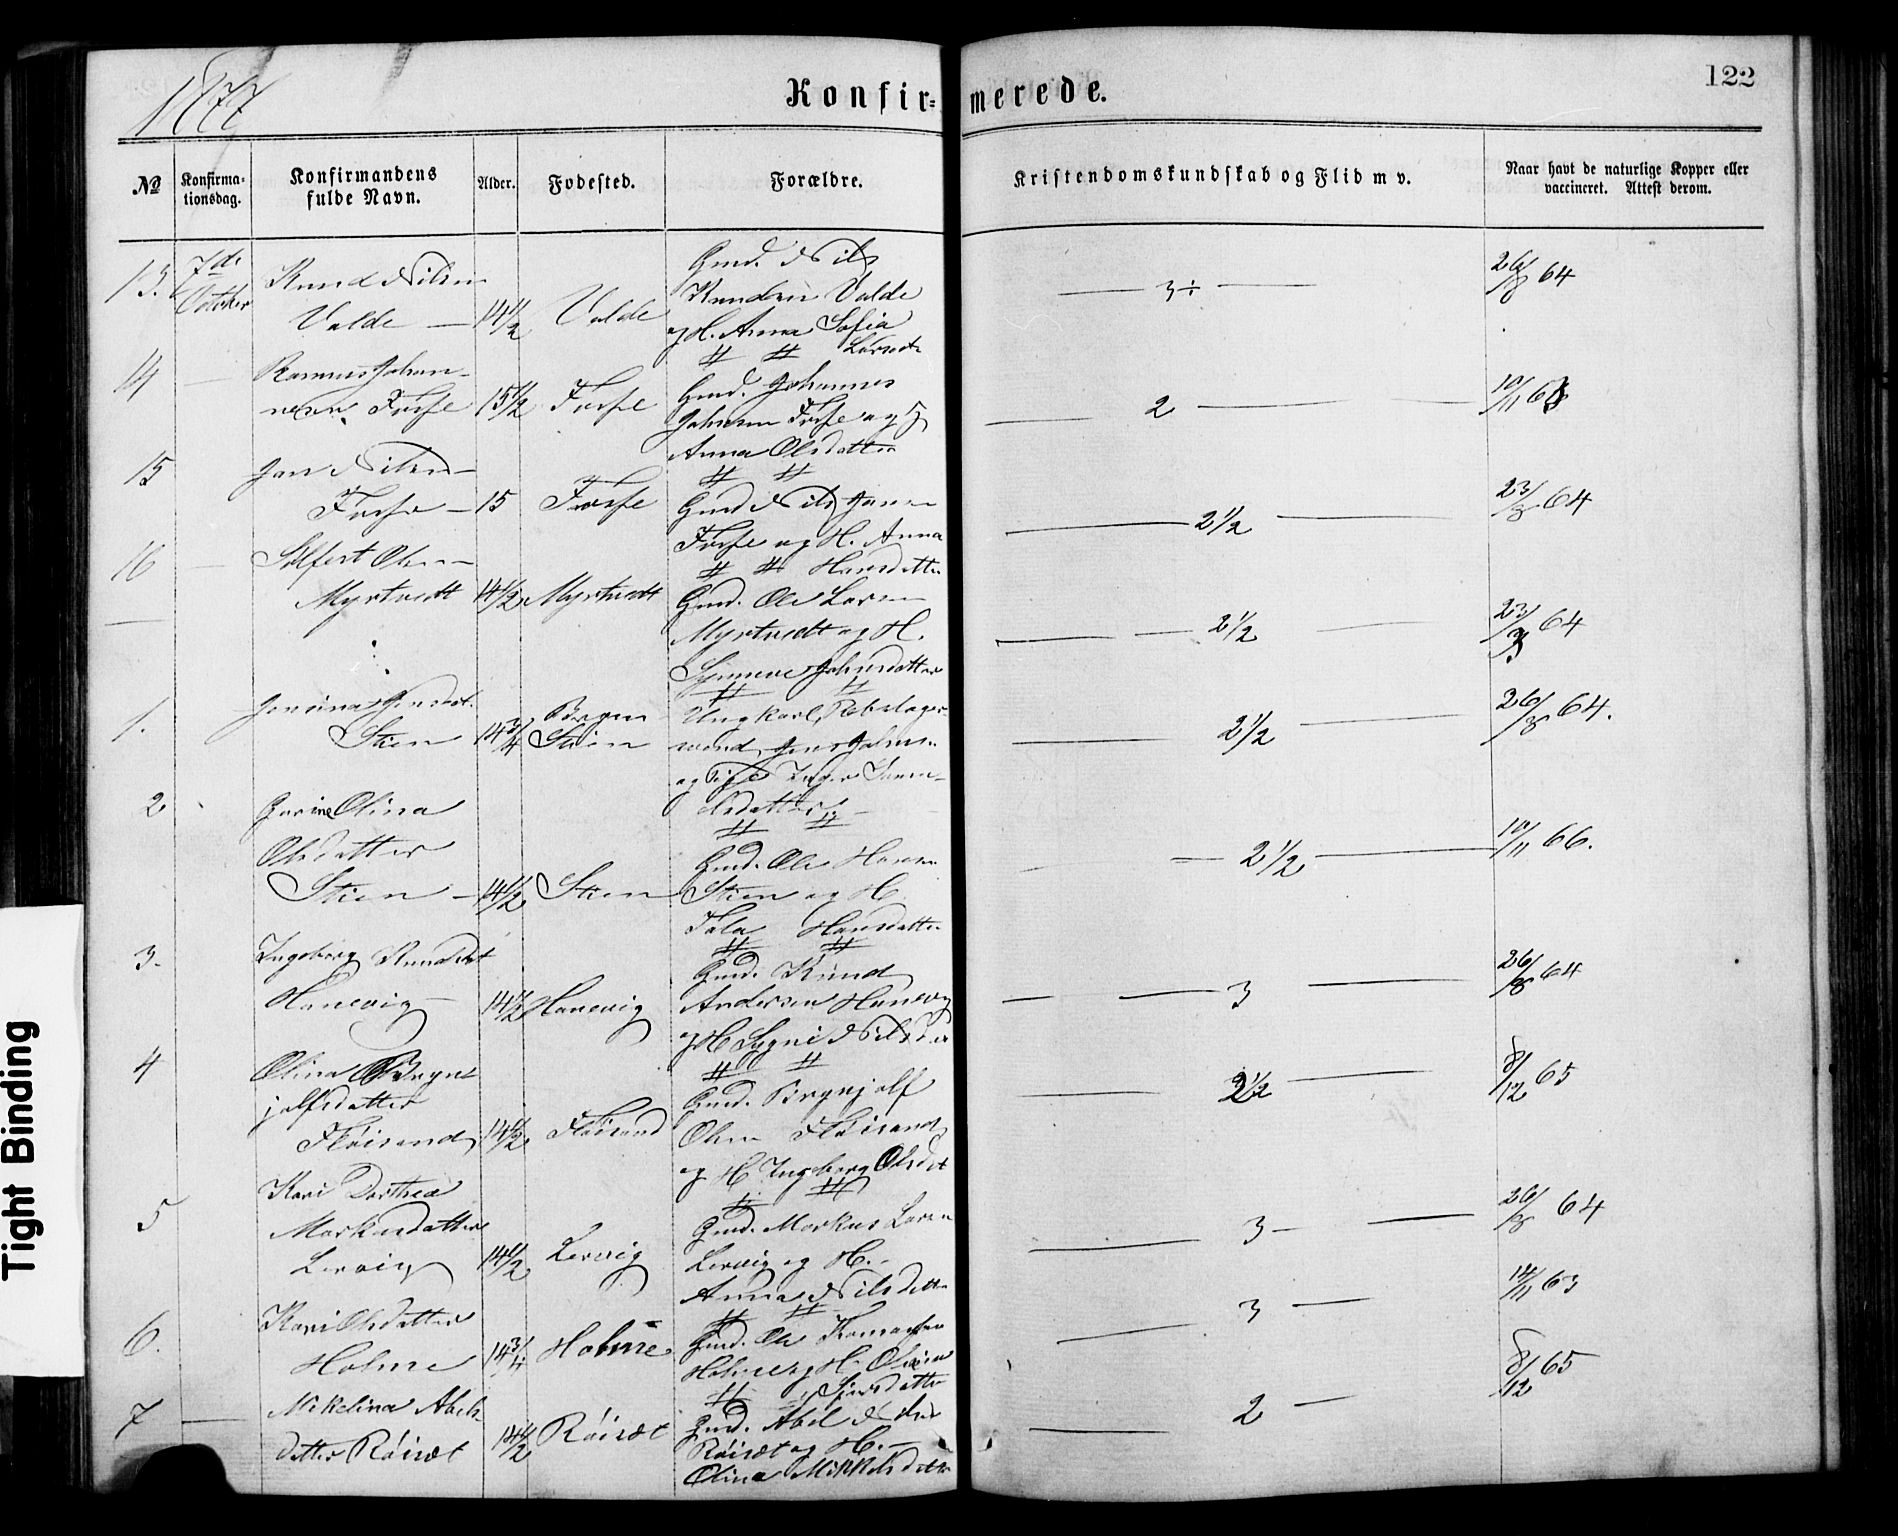 1877
Konfir=
merede.
122
No
Konfirma-
tionsdag.
Konfirmandens
fulde Navn.
Alder.
Fødested.
Forældre.
Kristendomskundskab og Flid m v.
Naar havt de naturlige Kopper eller
vaccineret. Attest derom.
13.
7de
October
Knud Nilsen
Valde
14 1/2
Valde
Gmd. Nils
Knudsen Valde
og H. Anna Sofia
Larsdt
3÷
26/8 64
14
Rasmus Johan-
nesen Fosse
15 1/2
Fosse
Gmd. Johannes
Johnsen Fosse og H
Anna Olsdatter
2
10/11 63
15
Jan Nilsen
Fosse
15
Fosse
Gmd Nils Jansen
Fosse og H. Anna
Hansdatter
2 1/2
23/8 64
16
Silfest Olsen
Myrtvedt
14 1/2
Myrtvedt
Gmd. Ole Larsen
Myrtvedt og H.
Synneve Johnsdatter
2 1/2
23/3 64
1.
Jensdt.
Stien
14 3/4
Bergen
Stien
Ungkarl, Rebslager-
svend Jens Johnsen
og Pige Inger
datter
2 1/2
26/8 64.
2
Olina
Olsdatter
Stien
14 1/2
Stien
Gmd. Ole Hansen
Stien og H
Hansdatter
2 1/2
10/11 66.
3.
Ingeborg Knudsdt
Hanevig
14 1/2
Hanevig
Gmd. Knud
Andersen Hanevig
og H Sygni Nilsd.er
3
26/8 64
4
Olina Bryn-
jolfsdatter
Fløisand
14 1/2
Fløisand
Gmd. Brynjolf
Olsen Fløisand
og H Ingeborg Olsdt
2 1/2
8/12 65
5
Kari Dorthea
Markusdatter
Lervig
14 1/2
Lervig
Gmd. Markus Larsen
Lervig og H.
Anna Nilsdatter
3
26/8 64
6.
Kari Olsdatter
Holme
14 3/4
Holme
Gmd. Ole Thomassen
Holme og H. Olina
datter
3
14/11 63
7
Mikelina Abels-
datter Röisæt
14 1/2
Röisæt
Gmd. Abel Nilsen
Röisæt og H.
Olina Mikkelsdatter
2
8/12 65
Tight Binding